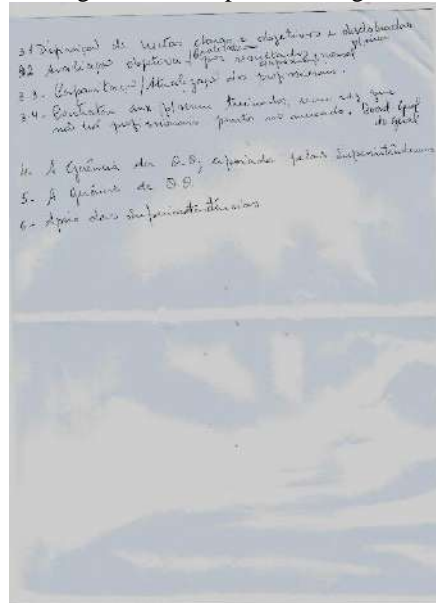 3.1 Definição de metas claras e objetivas e desdobradas
3.2 Avaliação objetiva / por resultados
3.3. Capacitação / Atualização dos profissionais.
3.4. Contratar aux treinados, uma vez que
não há profissionais prontos no mercado.
4. A Gerência de D.O, apoiada pelas Superintendências
5. A Gerência de D.O.
6. Apoio das Superintendências